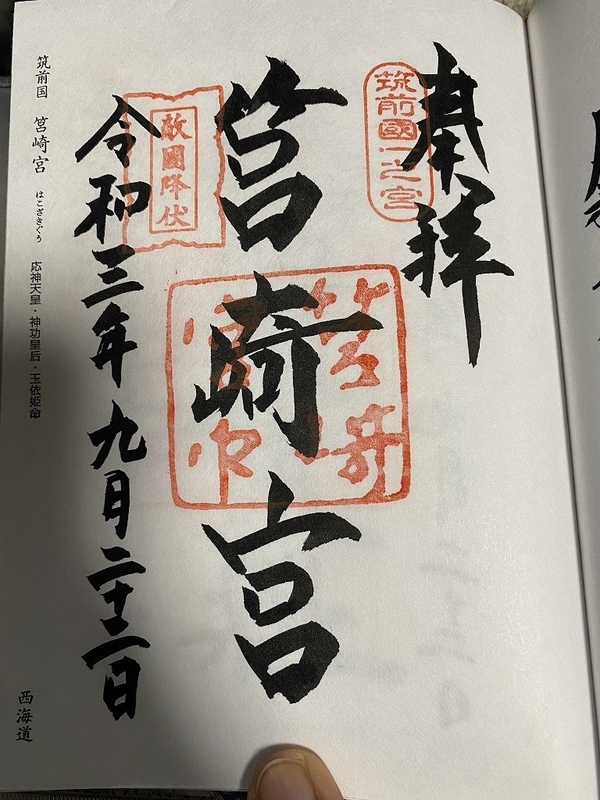 奉拝
筑前國一之宮
筥崎宮
筥崎
宮印
敵國降伏
令和三年九月二十二日
筑前国 筥崎宮 はこざきぐう 応神天皇・神功皇后・玉依姫命
西海道